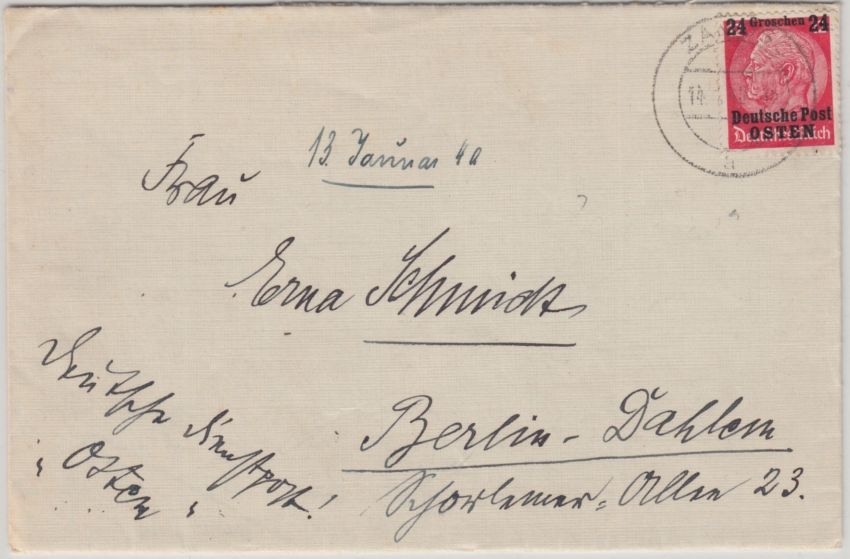 24 Groschen 24
Deutsche Post
OSTEN
13. Januar 40
Frau
Erna Schmidt
Berlin-Dahlem
Schorlemer-Allee 23.
Deutsche Dienstpost!
"Osten"